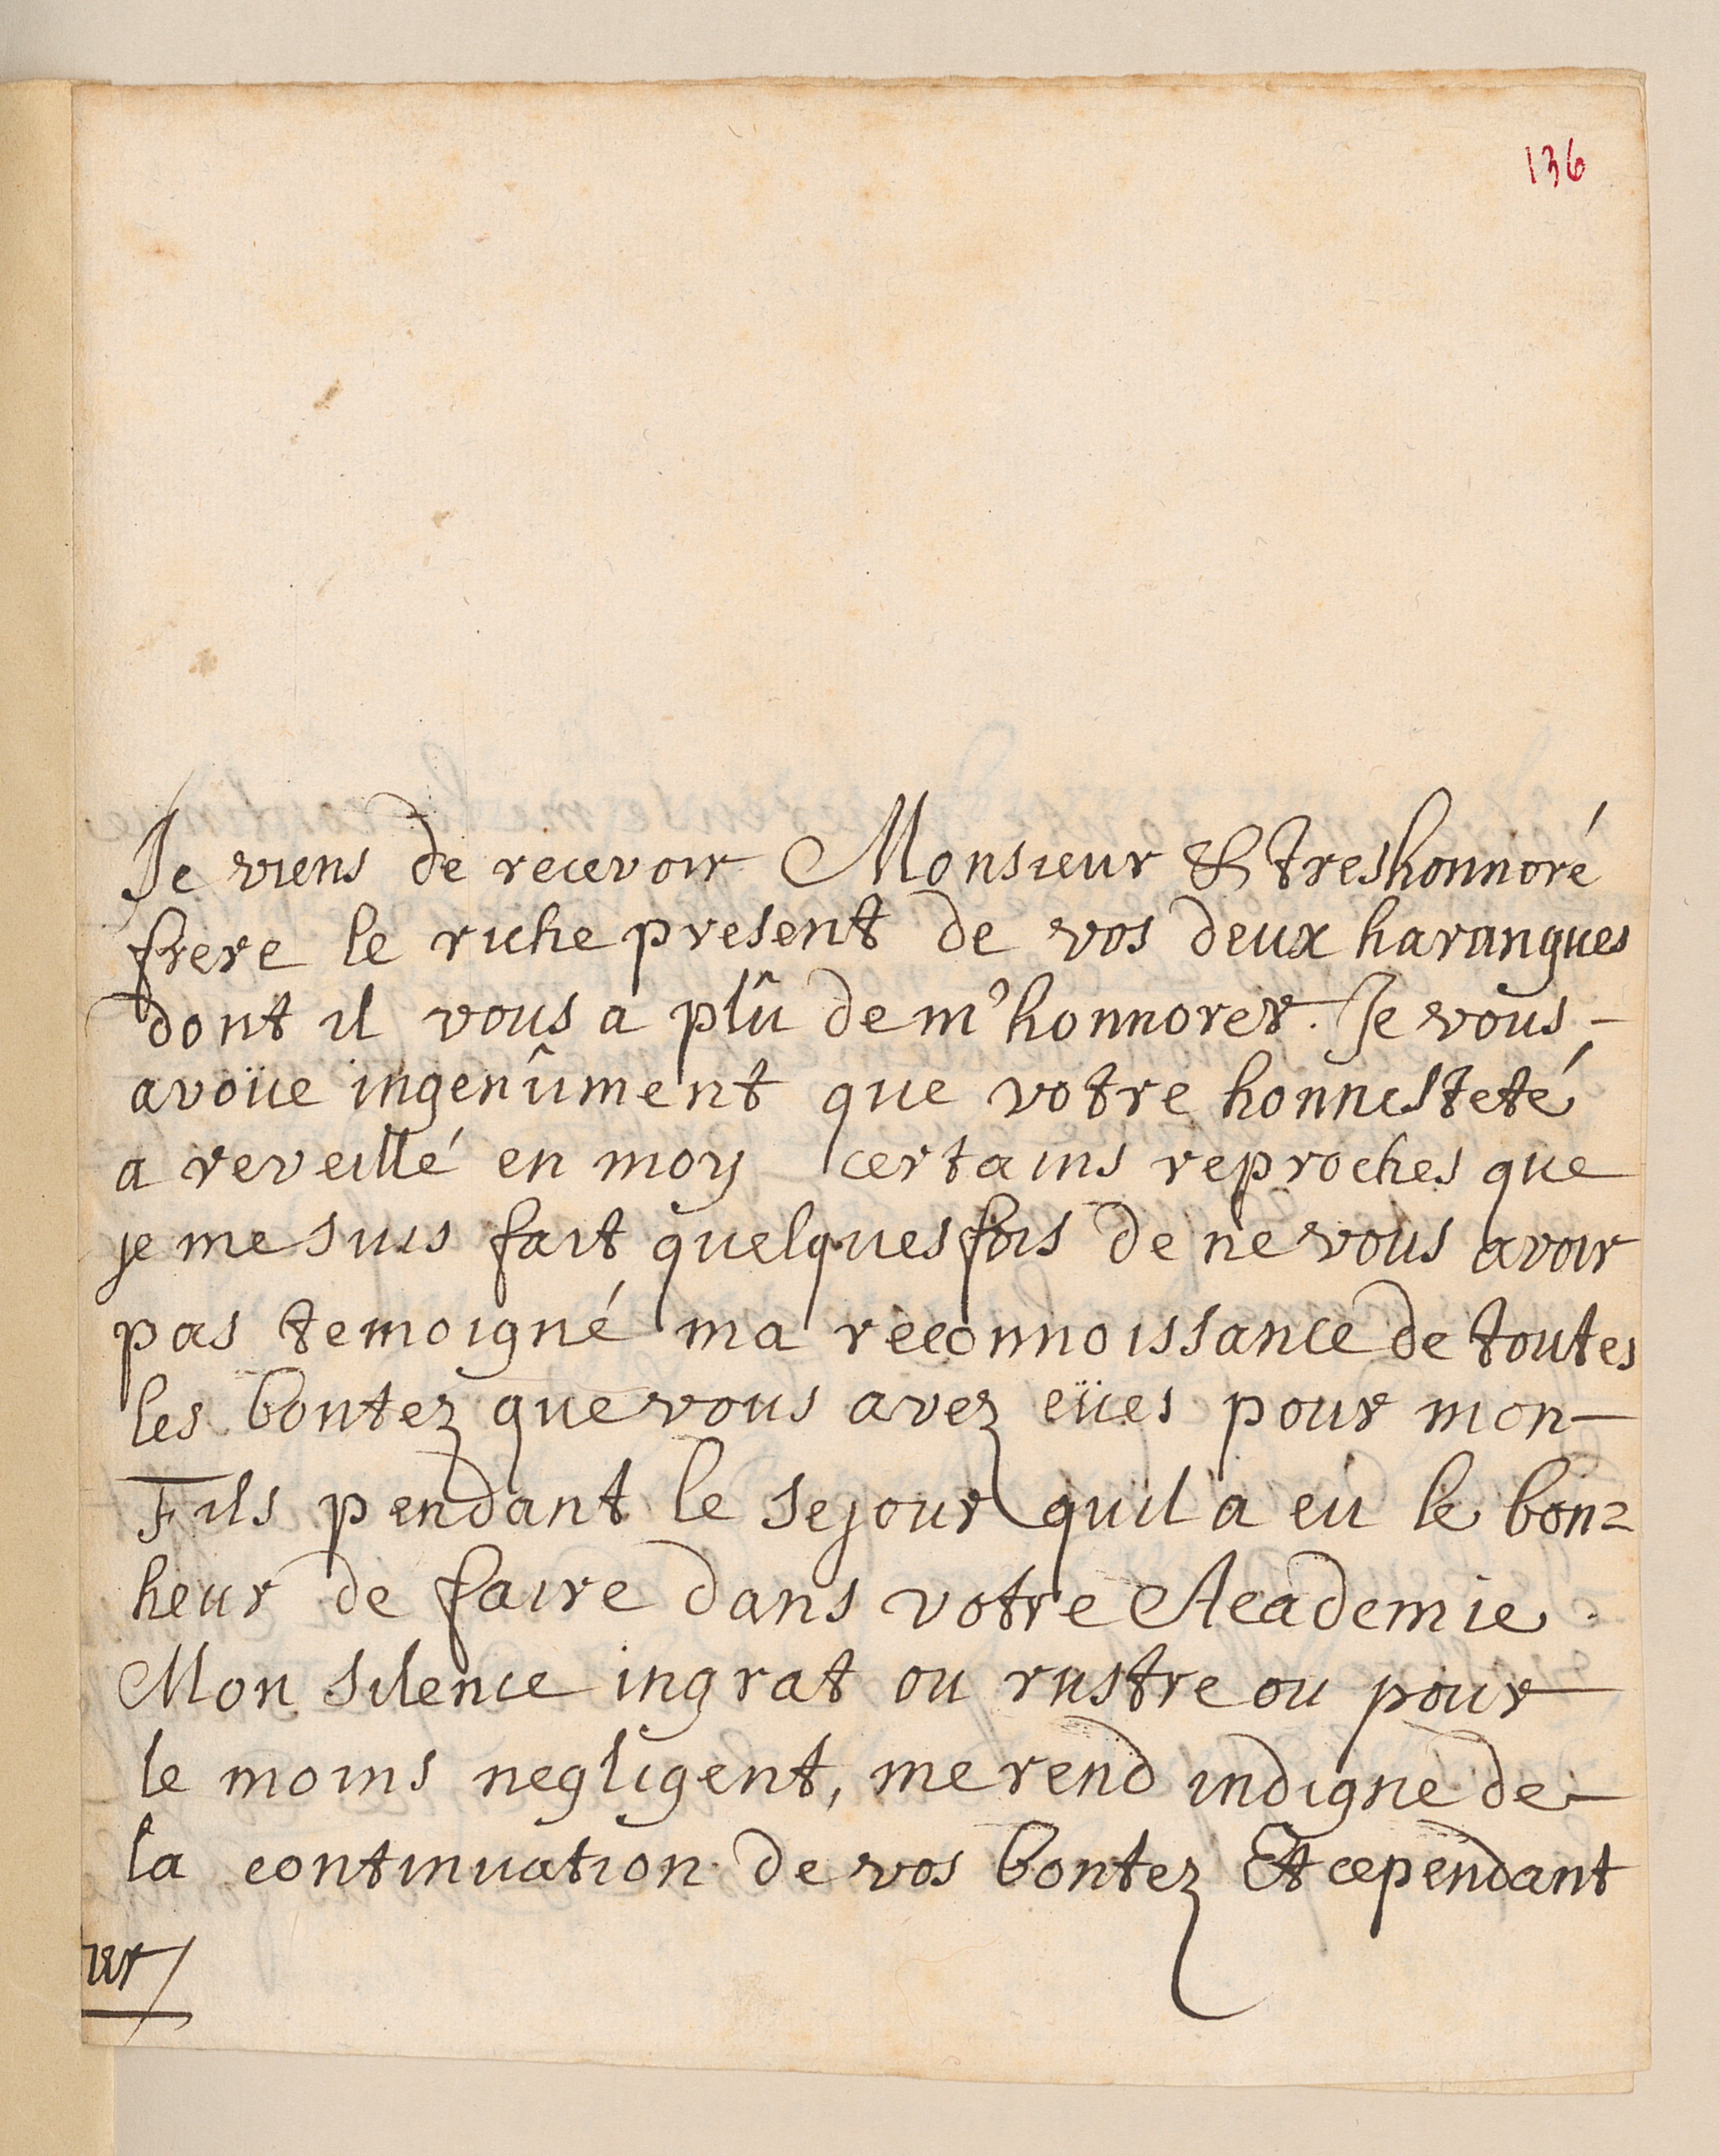 136
Je viens de recevoir Monsieur & treshonnoré
frere le riche present de vos deux harangues
dont il vous a plû de m'honnorer. Je vous -
avoüe ingenûment que votre honnesteté
a reveillé en moy certains reproches que
je me suis fait quelquesfois de ne vous avoir
pas temoigné ma reconnoissance de toutes
les bontez que vous avez eües pour mon-
Fils pendant le sejour quil a eu le bon=
heur de faire dans votre Academie.
Mon silence ingrat ou rustre ou pour
le moins negligent, me rend indigne de-
la continuation de vos bontez Et cependant